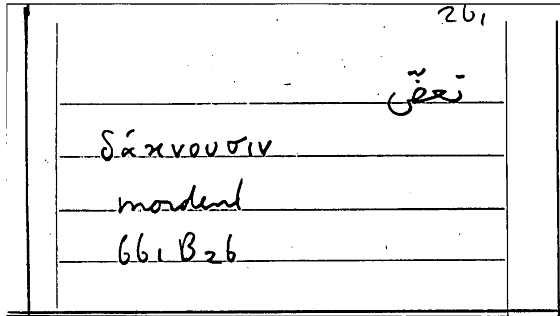 261
تعضّ
δάκνουσιν
mordent
661 B26